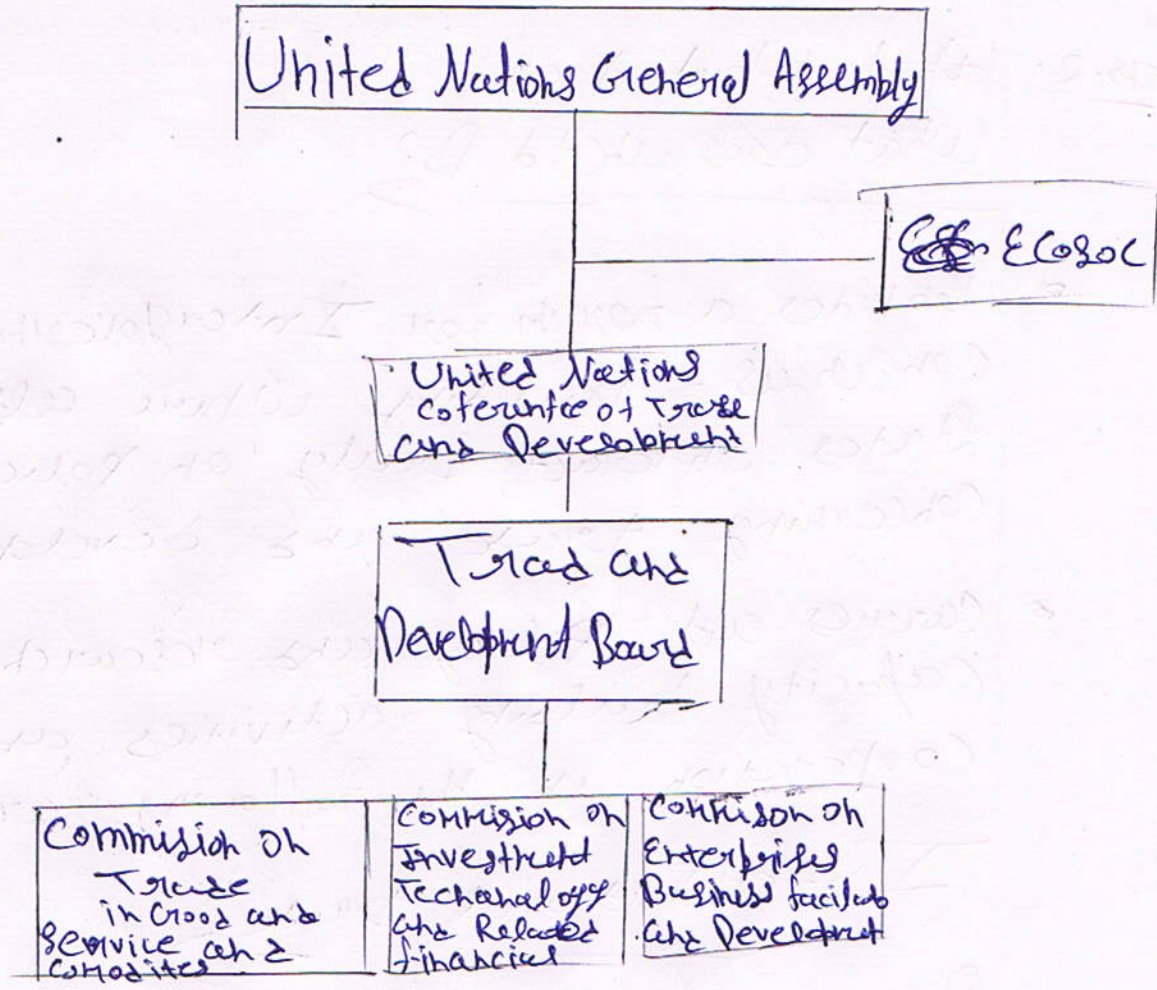 United Nations General Assembly
ECOSOC
United Nations
Coferuntce of Trade
and Development
Trad and
Development Board
Commision on
Trade
in Good and
Servvice and
comodites
Commision on
Investment
Techanalogy
and Related
financial
Commison on
Enterprises
Business
and Development